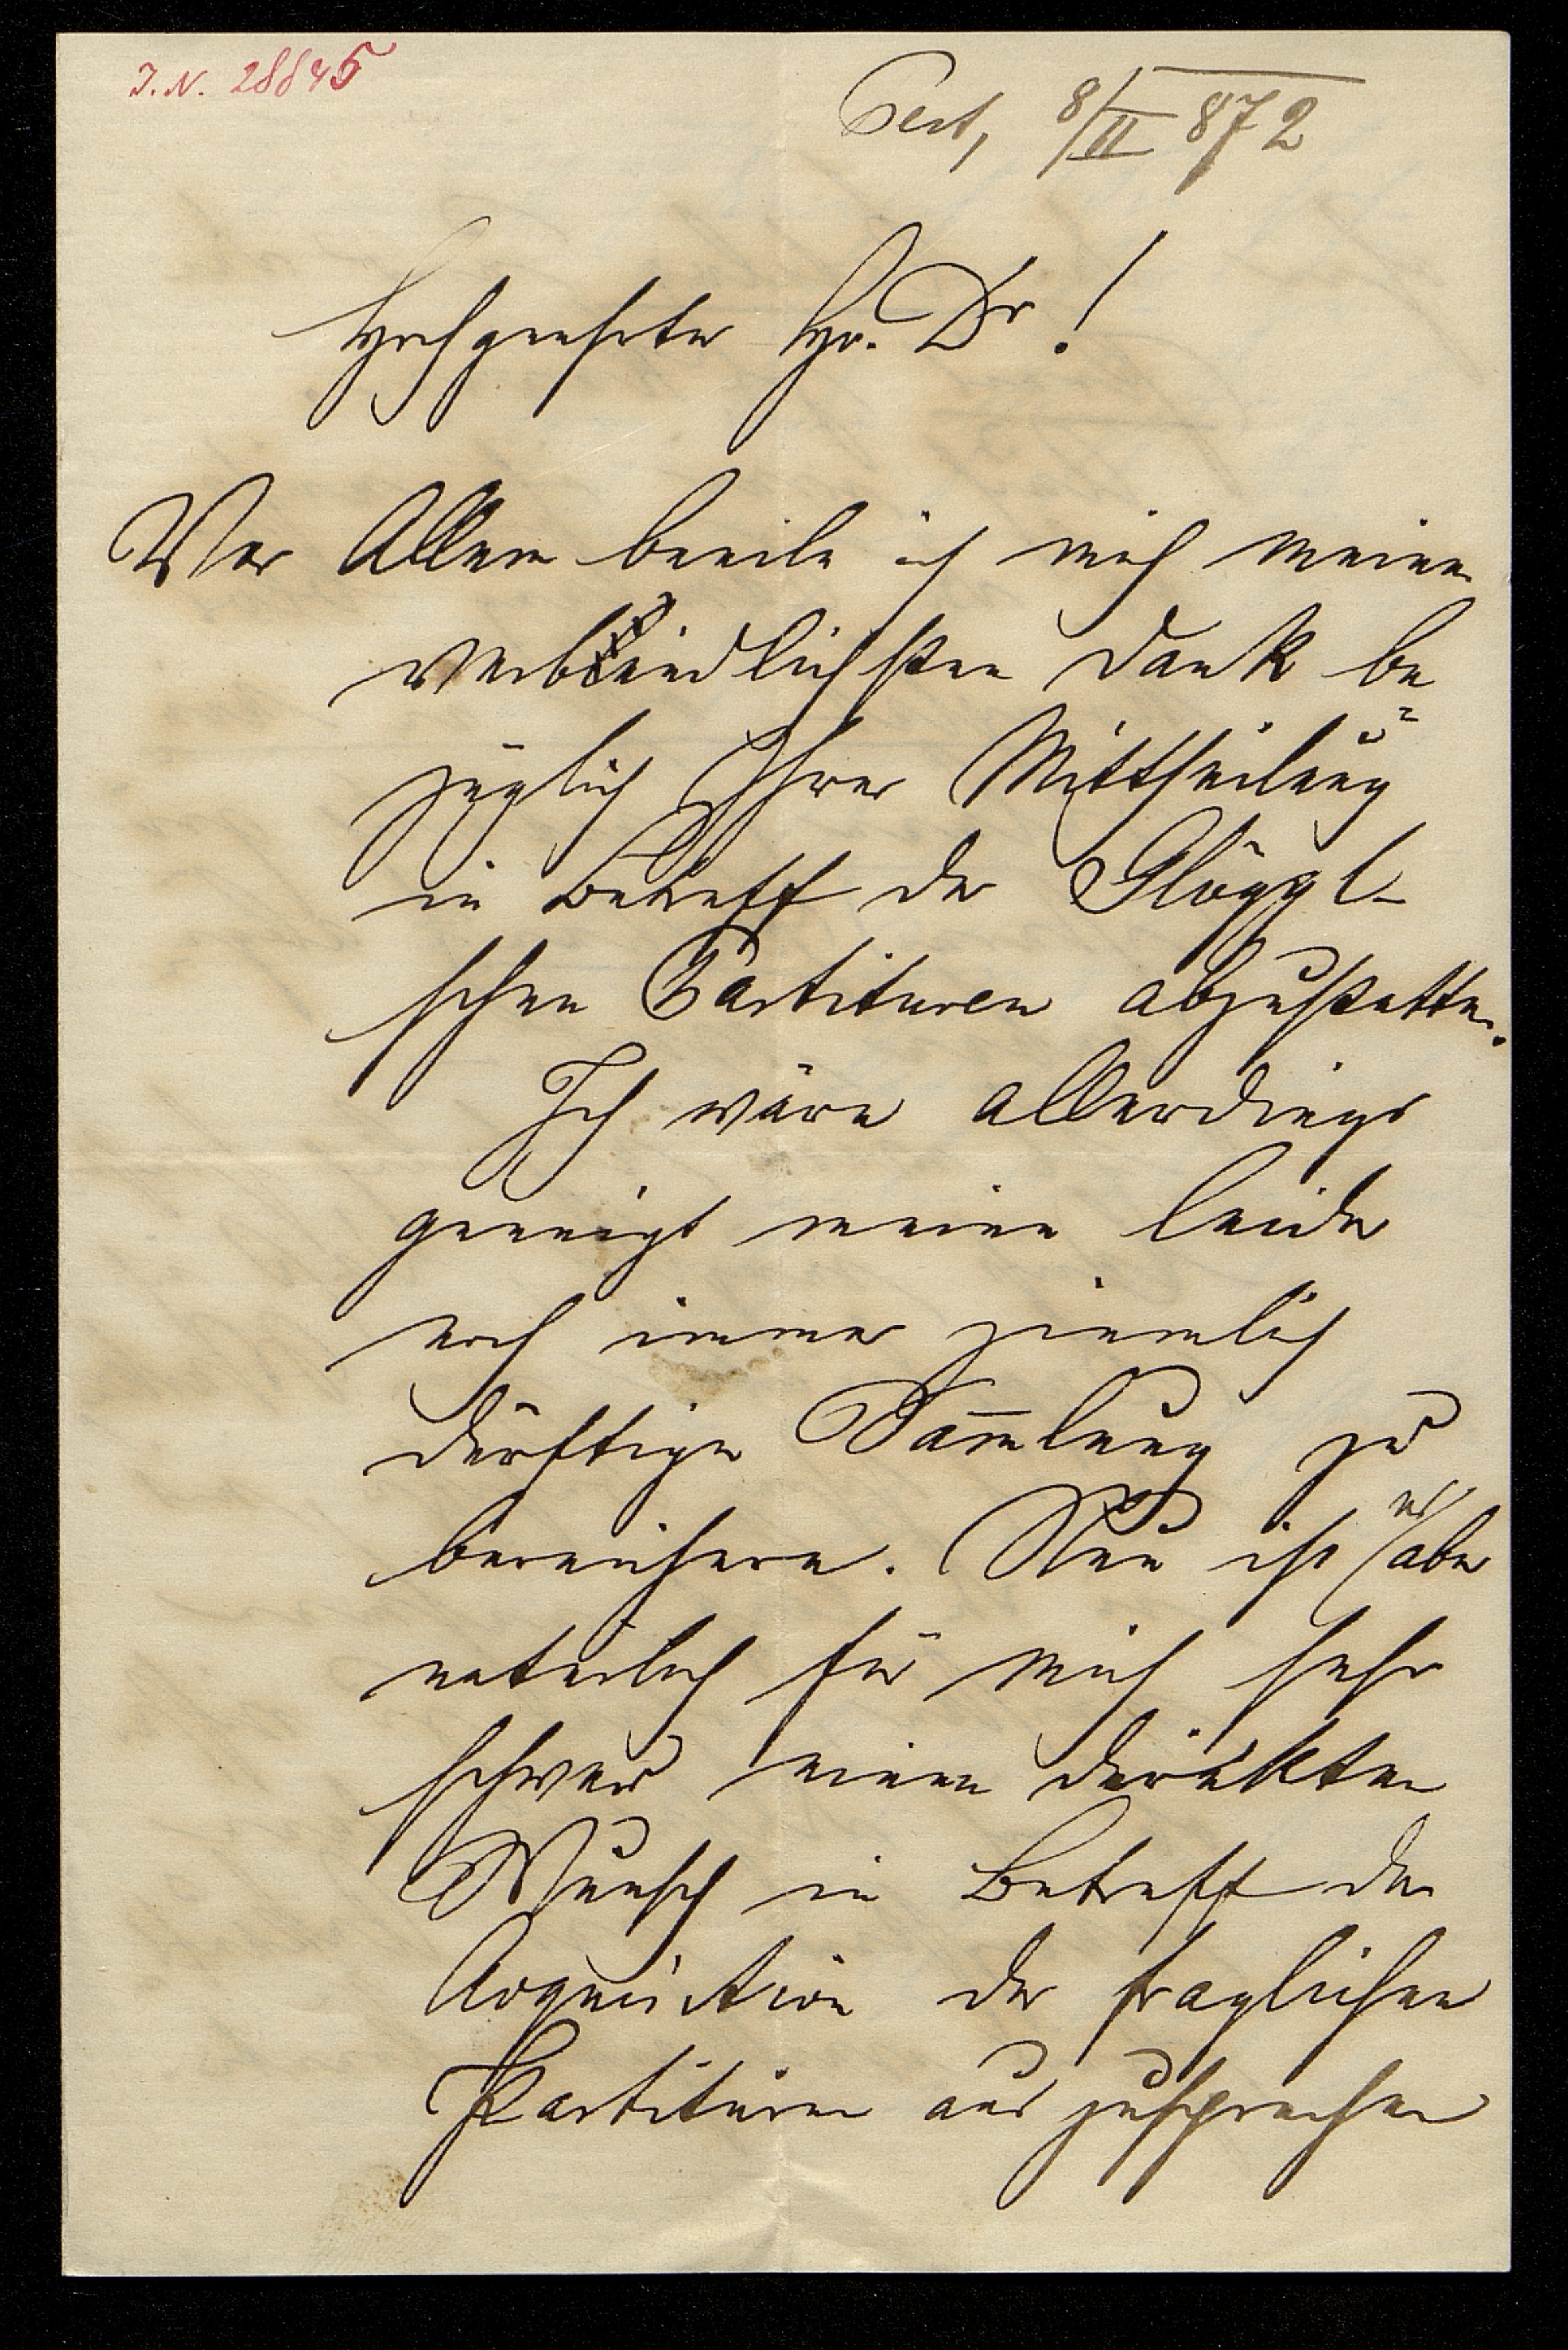 I.N. 28845
Pest, 8/II 872
Hochgeehrter Hr. Dr!
Vor Allem beeile ich mich meinen
verbindlichsten Dank be
züglich Ihrer Mittheilung
in Betreff der Glöggl-
schen Partituren abzustatten.
Ich wäre allerdings
geneigt meine leider
noch immer ziemlich
dürftige Sam̅lung zu
bereichern. Nun ist es aber
natürlich für mich sehr
schwer einen direkten
Wunsch in Betreff der
Acquisition der fraglichen
Partituren auszusprechen